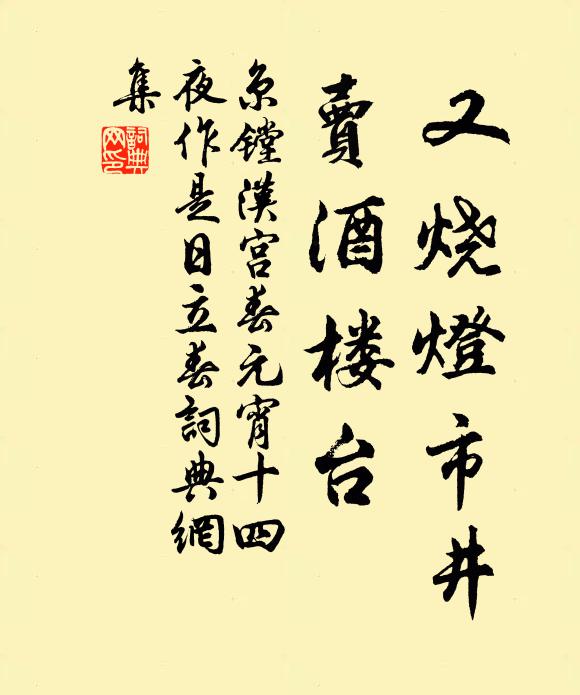 又烧燈市井
賣酒楼台
京鏜漢宫春元宵十四
夜作是日立春詞典網
集
詞典網印